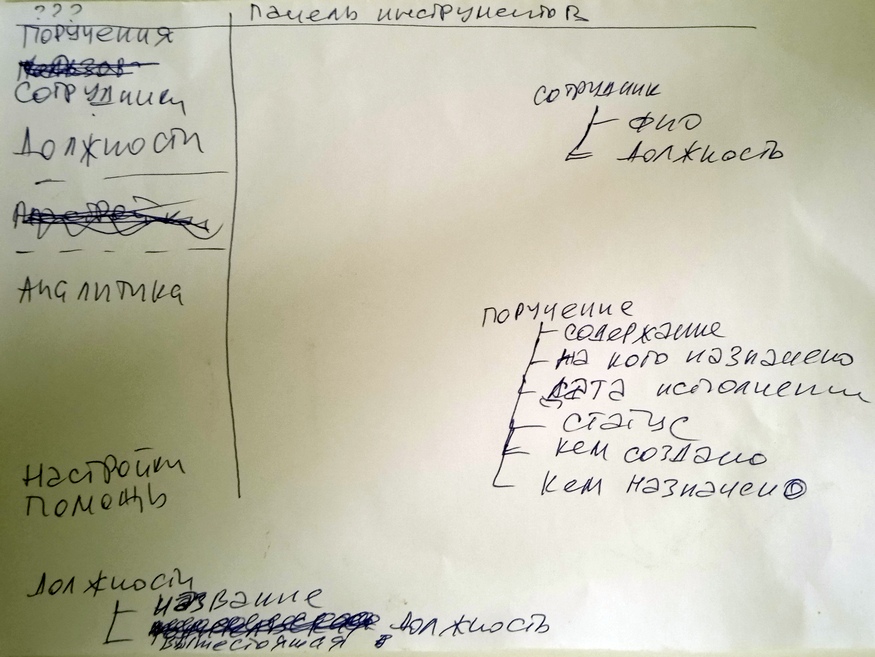 ???
Панель инструментов
Поручения
Сотрудники
Должности
Аналитика
Настройки
Помощь
Сотрудник
ФИО
Должность
Поручение
содержание
на кого назначено
дата исполнении
статус
кем создано
кем назначено
Должности
название
вышестоящая должность